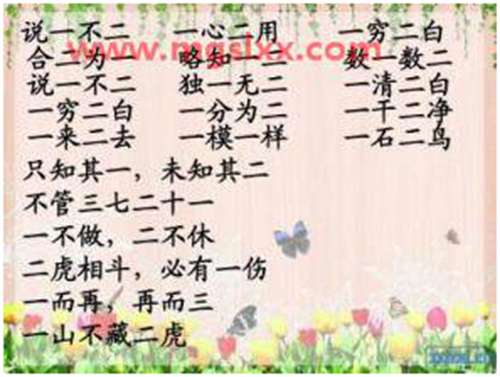 说一不二 一心二用 一穷二白
合二为一 略知一二 数一数二
www.mgslxx.com
说一不二 独一无二 一清二白
一穷二白 一分为二 一干二净
一来二去 一模一样 一石二鸟
只知其一，未知其二
不管三七二十一
一不做，二不休
二虎相斗，必有一伤
一而再，再而三
一山不藏二虎